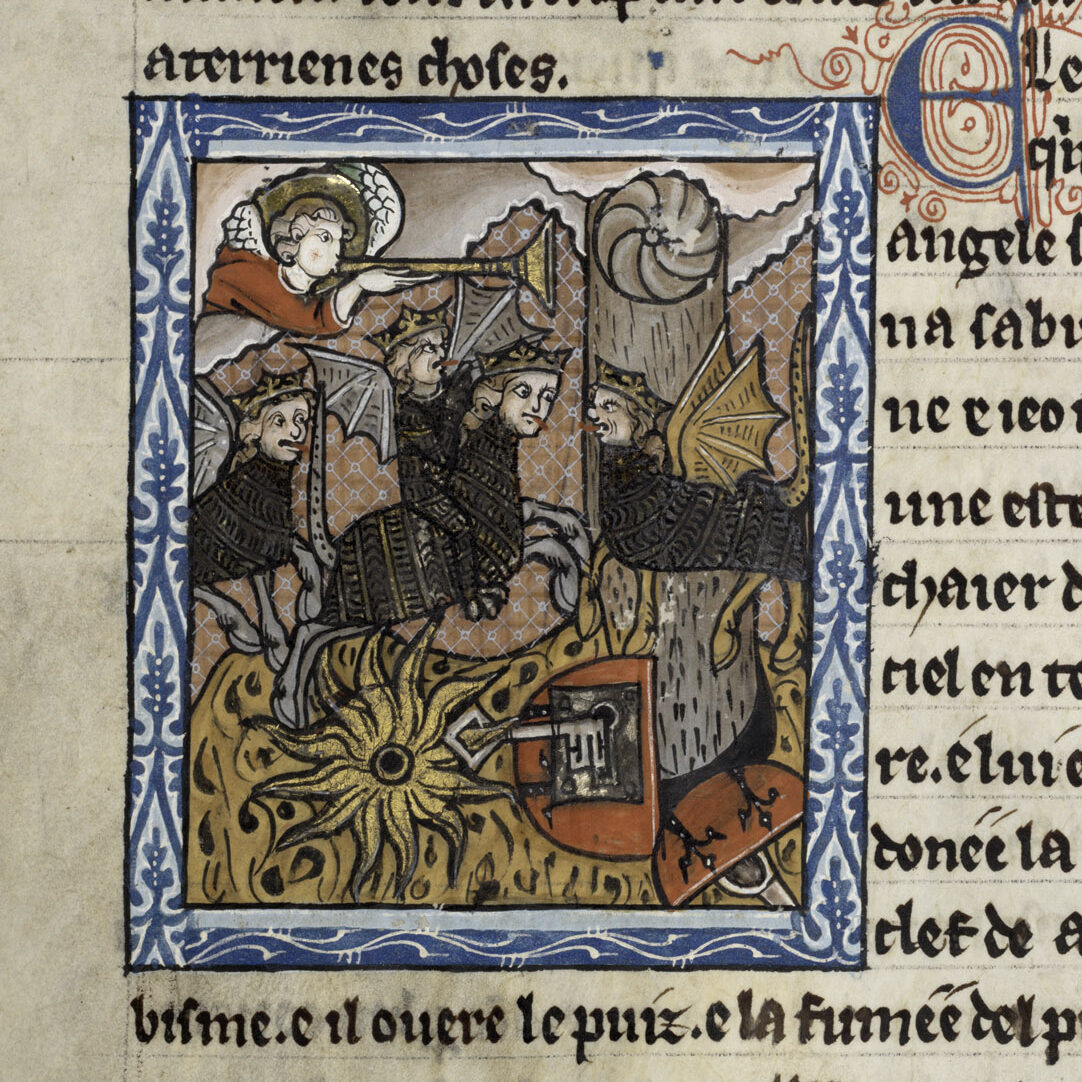 aterrienes choses.
E Le
qi
angele s
na sabu
ne e ieo
une este
chaier d
ciel en te
re. e lui e
donee la
clef de a
bisme. e il ouere le puiz. e la fumee del p